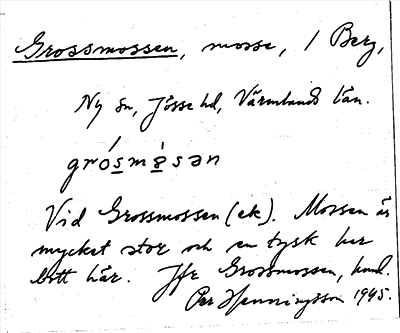 Grossmossen, mosse, i Berg,
Ny sn, Jösse hd, Värmlands län.
grósmòsən
Vid Grossmossen (ek). Mossen är
mycket stor och en tysk har
bott här. Jfr Grossmossen, hmd.
Per Henningsson 1945.